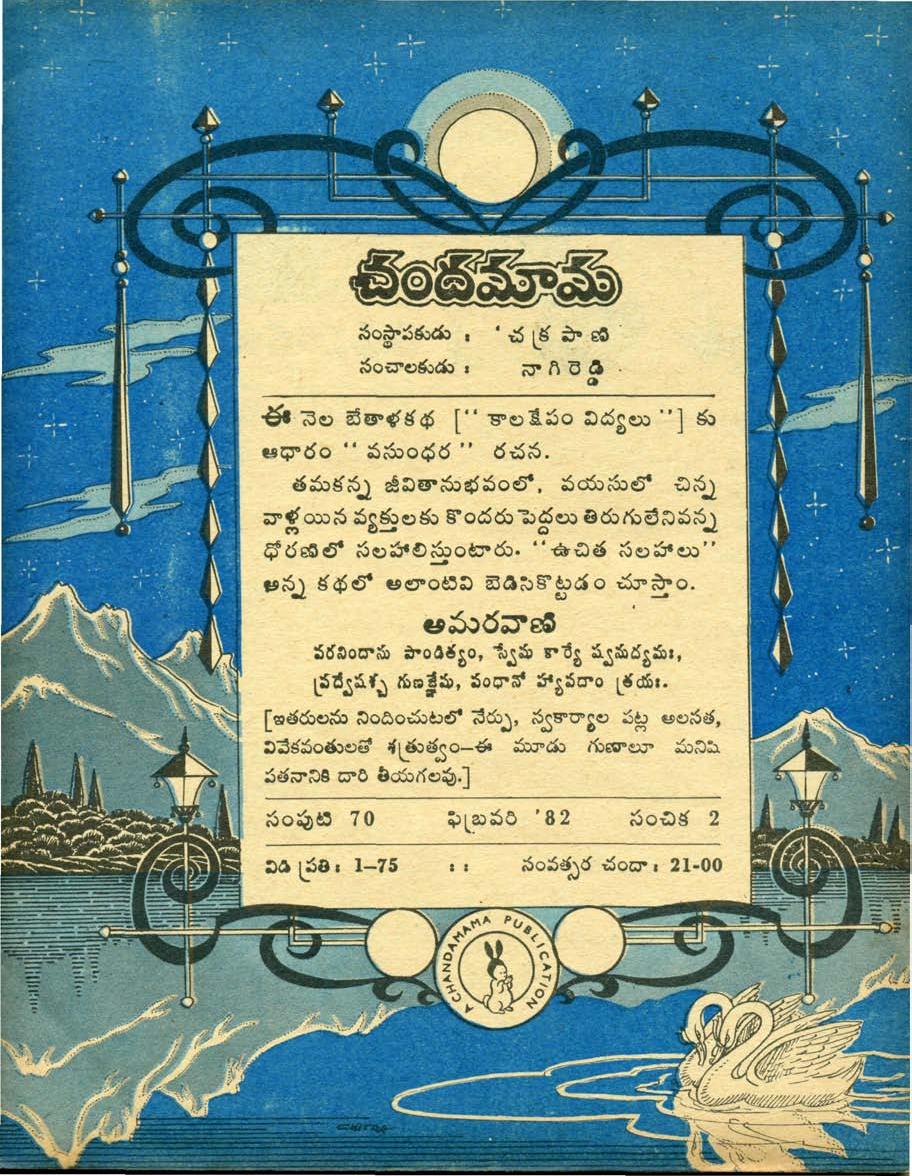 చందమామ
సంస్థాపకుడు : ' చక్రపాణి
సంచాలకుడు : నాగిరెడ్డి
ఈ నెల బేతాళకథ ["కాలక్షేపం విద్యలు"] కు
ఆధారం "వసుంధర" రచన.
తమకన్న జీవితానుభవంలో, వయసులో చిన్న
వాళ్లయిన వ్యక్తులకు కొందరు పెద్దలు తిరుగులేనివన్న
ధోరణిలో సలహాలిస్తుంటారు. "ఉచిత సలహాలు"
అన్న కథలో అలాంటివి బెడిసికొట్టడం చూస్తాం.
అమరవాణి
పరనిందాసు పాండిత్యం, స్వేషు కార్యే ష్వనుద్యమః,
ప్రద్వేషశ్చ గుణజ్ఞేషు, పంథానో హ్యాపదాం త్రయః.
[ఇతరులను నిందించుటలో నేర్పు, స్వకార్యాల పట్ల అలసత,
వివేకవంతులతో శత్రుత్వం—ఈ మూడు గుణాలూ మనిషి
పతనానికి దారి తీయగలవు.]
సంపుటి 70 ఫిబ్రవరి '82 సంచిక 2
విడి ప్రతి : 1-75 : : సంవత్సర చందా : 21-00
A CHANDAMAMA PUBLICATION
CHITRA